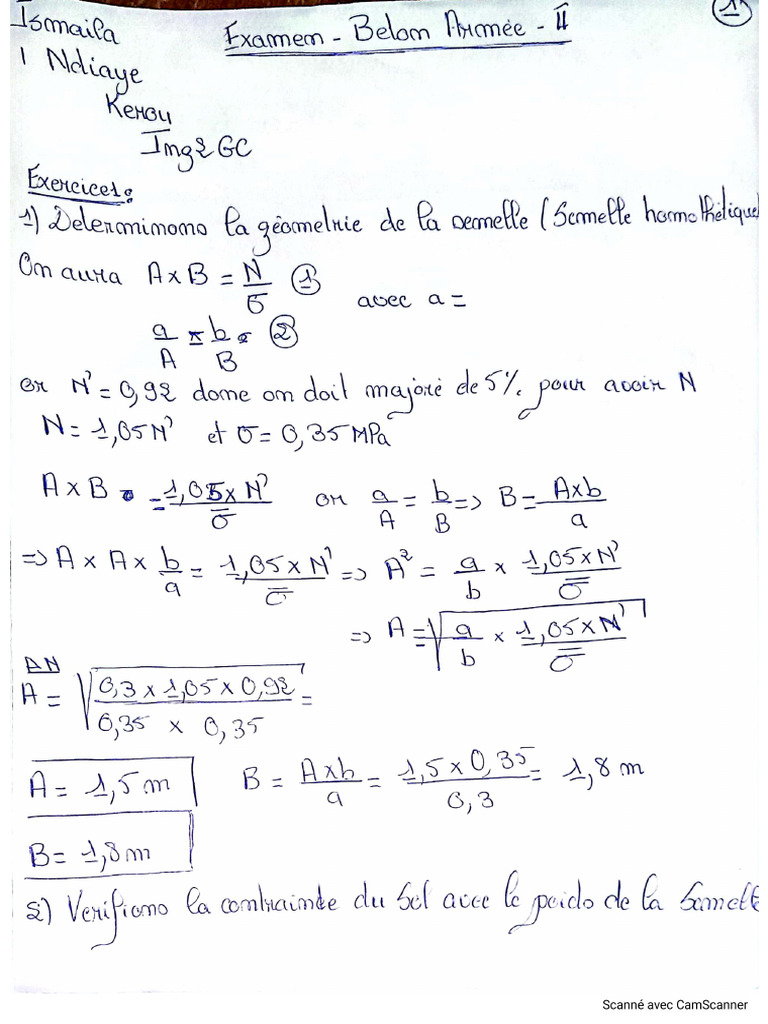 Ismaila
Examen - Beton Armée - II
1
Ndiaye
Kerou
Ing2 GC
Exercice1:
1) Determinons la géometrie de la semelle (Semelle homothétique)
On aura A x B = N/σ̅ ① avec a =
a/A = b/B ②
or N' = 0,92 donc on doit majoré de 5% pour avoir N
N = 1,05N' et σ̅ = 0,35 MPa
A x B = 1,05 x N'/σ̅ or a/A = b/B => B = A x b/a
=> A x A x b/a = 1,05 x N'/σ̅ => A² = a/b x 1,05 x N'/σ̅
=> A = √(a/b x 1,05 x N'/σ̅)
AN
A = √(0,3 x 1,05 x 0,92/0,35 x 0,35) =
A = 1,5 m B = A x b/a = 1,5 x 0,35/0,3 = 1,8 m
B = 1,8 m
2) Verifions la contrainte du Sol avec le poids de la Semelle
Scanné avec CamScanner